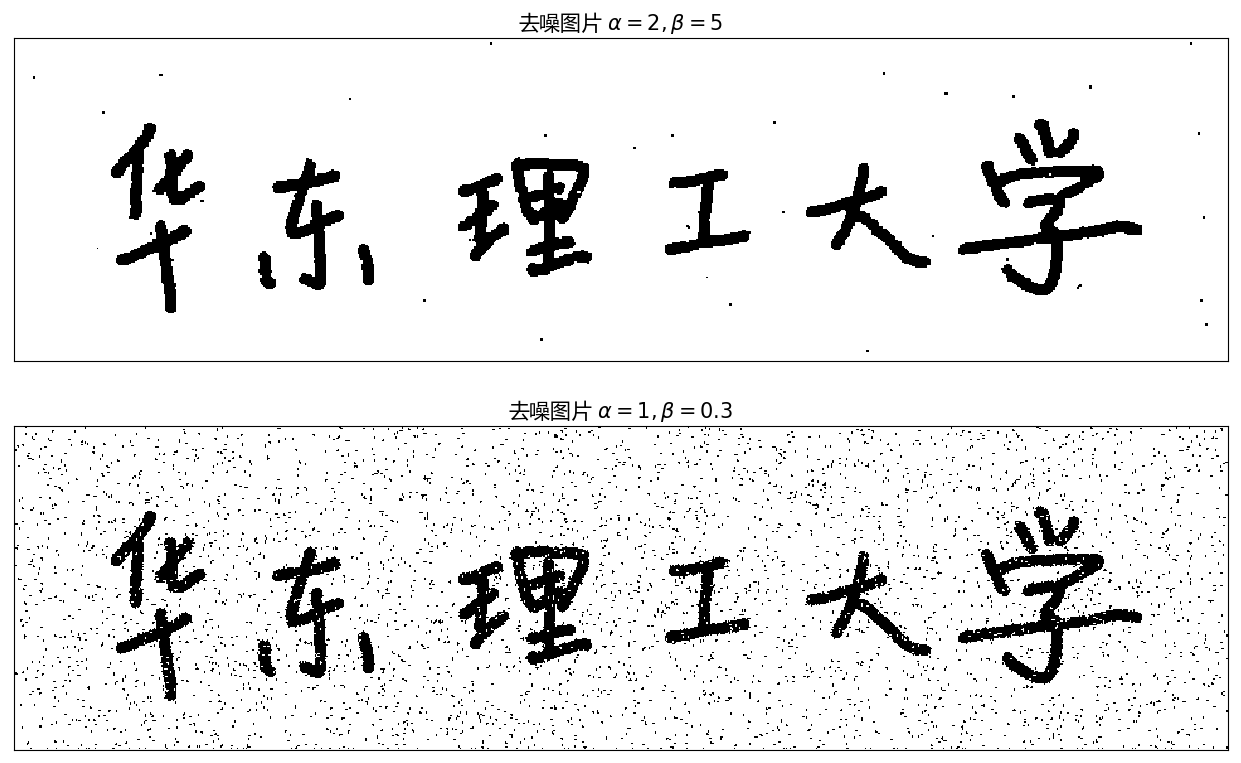 去噪图片 α = 2, β = 5
华东理工大学
去噪图片 α = 1, β = 0.3
华东理工大学